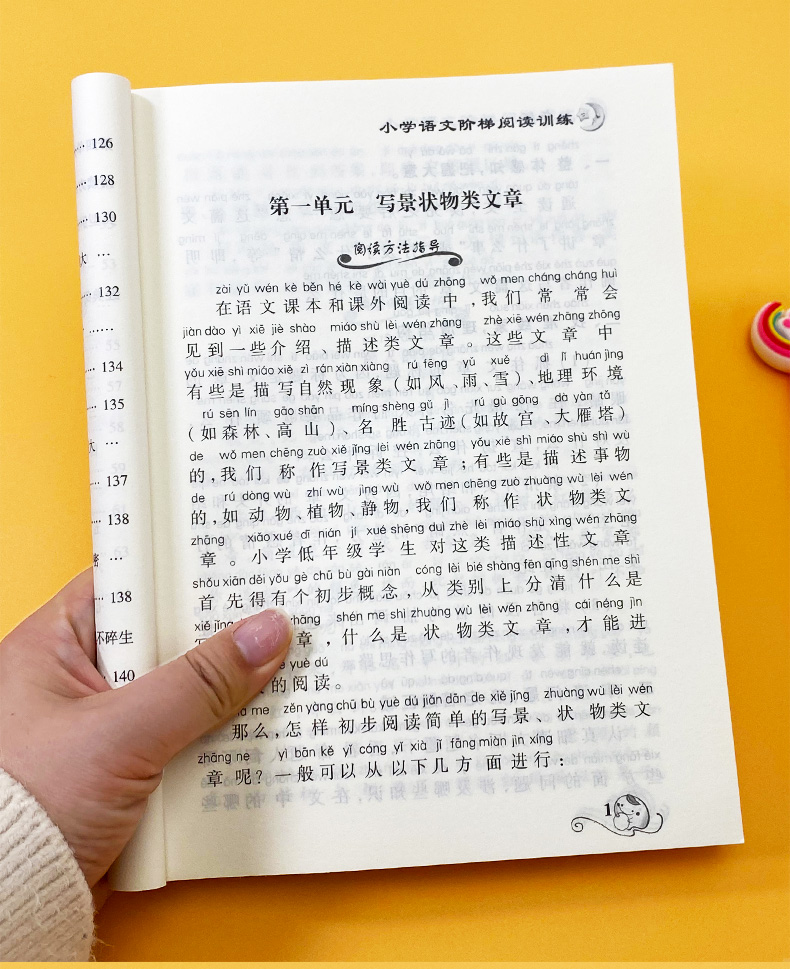 126
128
130
大 …
132
……
134
135
大 …
137
138
138
不碎生
140
小学语文阶梯阅读训练
第一单元 写景状物类文章
阅读方法指导
zài yǔ wén kè běn hé kè wài yuè dú zhōng wǒ men cháng cháng huì
在语文课本和课外阅读中,我们常常会
jiàn dào yì xiē jiè shào miáo shù lèi wén zhāng zhè xiē wén zhāng zhōng
见到一些介绍、描述类文章。这些文章中
yǒu xiē shì miáo xiě zì rán xiàn xiàng rú fēng yǔ xuě dì lǐ huán jìng
有些是描写自然现象(如风、雨、雪)、地理环境
rú sēn lín gāo shān míng shèng gǔ jì rú gù gōng dà yàn tǎ
(如森林、高山)、名胜古迹(如故宫、大雁塔)
de wǒ men chēng zuò xiě jǐng lèi wén zhāng yǒu xiē shì miáo shù shì wù
的,我们称作写景类文章;有些是描述事物
de rú dòng wù zhí wù jìng wù wǒ men chēng zuò zhuàng wù lèi wén
的,如动物、植物、静物,我们称作状物类文
zhāng xiǎo xué dī nián jí xué shēng duì zhè lèi miáo shù xìng wén zhāng
章。小学低年级学生对这类描述性文章
shǒu xiān děi yǒu gè chū bù gài niàn cóng lèi bié shàng fēn qīng shén me shì
首先得有个初步概念,从类别上分清什么是
xiě jǐng zhāng shén me shì zhuàng wù lèi wén zhāng cái néng jìn
章,什么是状物类文章,才能进
yuè dú
的阅读。
me zěn yàng chū bù yuè dú jiǎn dān de xiě jǐng zhuàng wù lèi wén
那么,怎样初步阅读简单的写景、状物类文
zhāng ne yì bān kě yǐ cóng yǐ xià jǐ fāng miàn jìn xíng
章呢?一般可以从以下几方面进行:
1